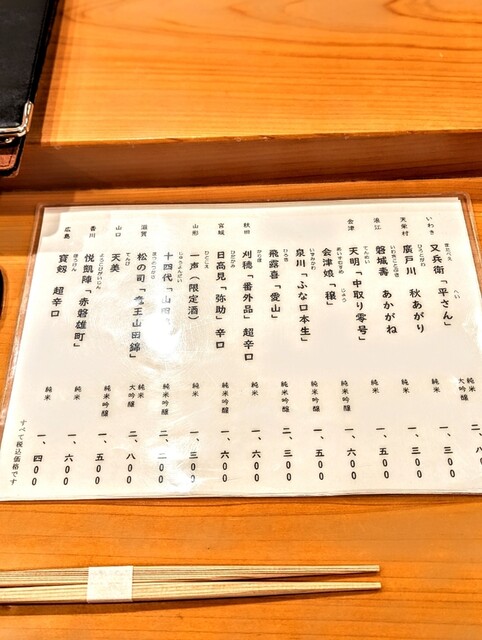 いわき 又兵衛「平さん」 純米大吟醸 二、八
天栄村 廣戸川 秋あがり 純米 一、三〇〇
浪江 磐城壽 あかがね 純米 一、五〇〇
天明「中取り零号」 純米 一、三〇〇
会津 会津娘「穣」 純米吟醸 一、六〇〇
泉川「ふな口本生」 純米吟醸 一、五〇〇
飛露喜「愛山」 純米吟醸 二、三〇〇
秋田 刈穂「番外品」超辛口 純米 一、六〇〇
宮城 日高見「弥助」辛口 純米吟醸 一、六〇〇
山形 一声(限定酒) 純米 一、三〇〇
十四代「山田 純米吟醸 二、二〇〇
滋賀 松の司「竜王山田錦」 純米大吟醸 二、八〇〇
山口 天美 純米吟醸 一、五〇〇
香川 悦凱陣「赤磐雄町」 純米 一、六〇〇
広島 寶剱 超辛口 純米 一、四〇〇
すべて税込価格です